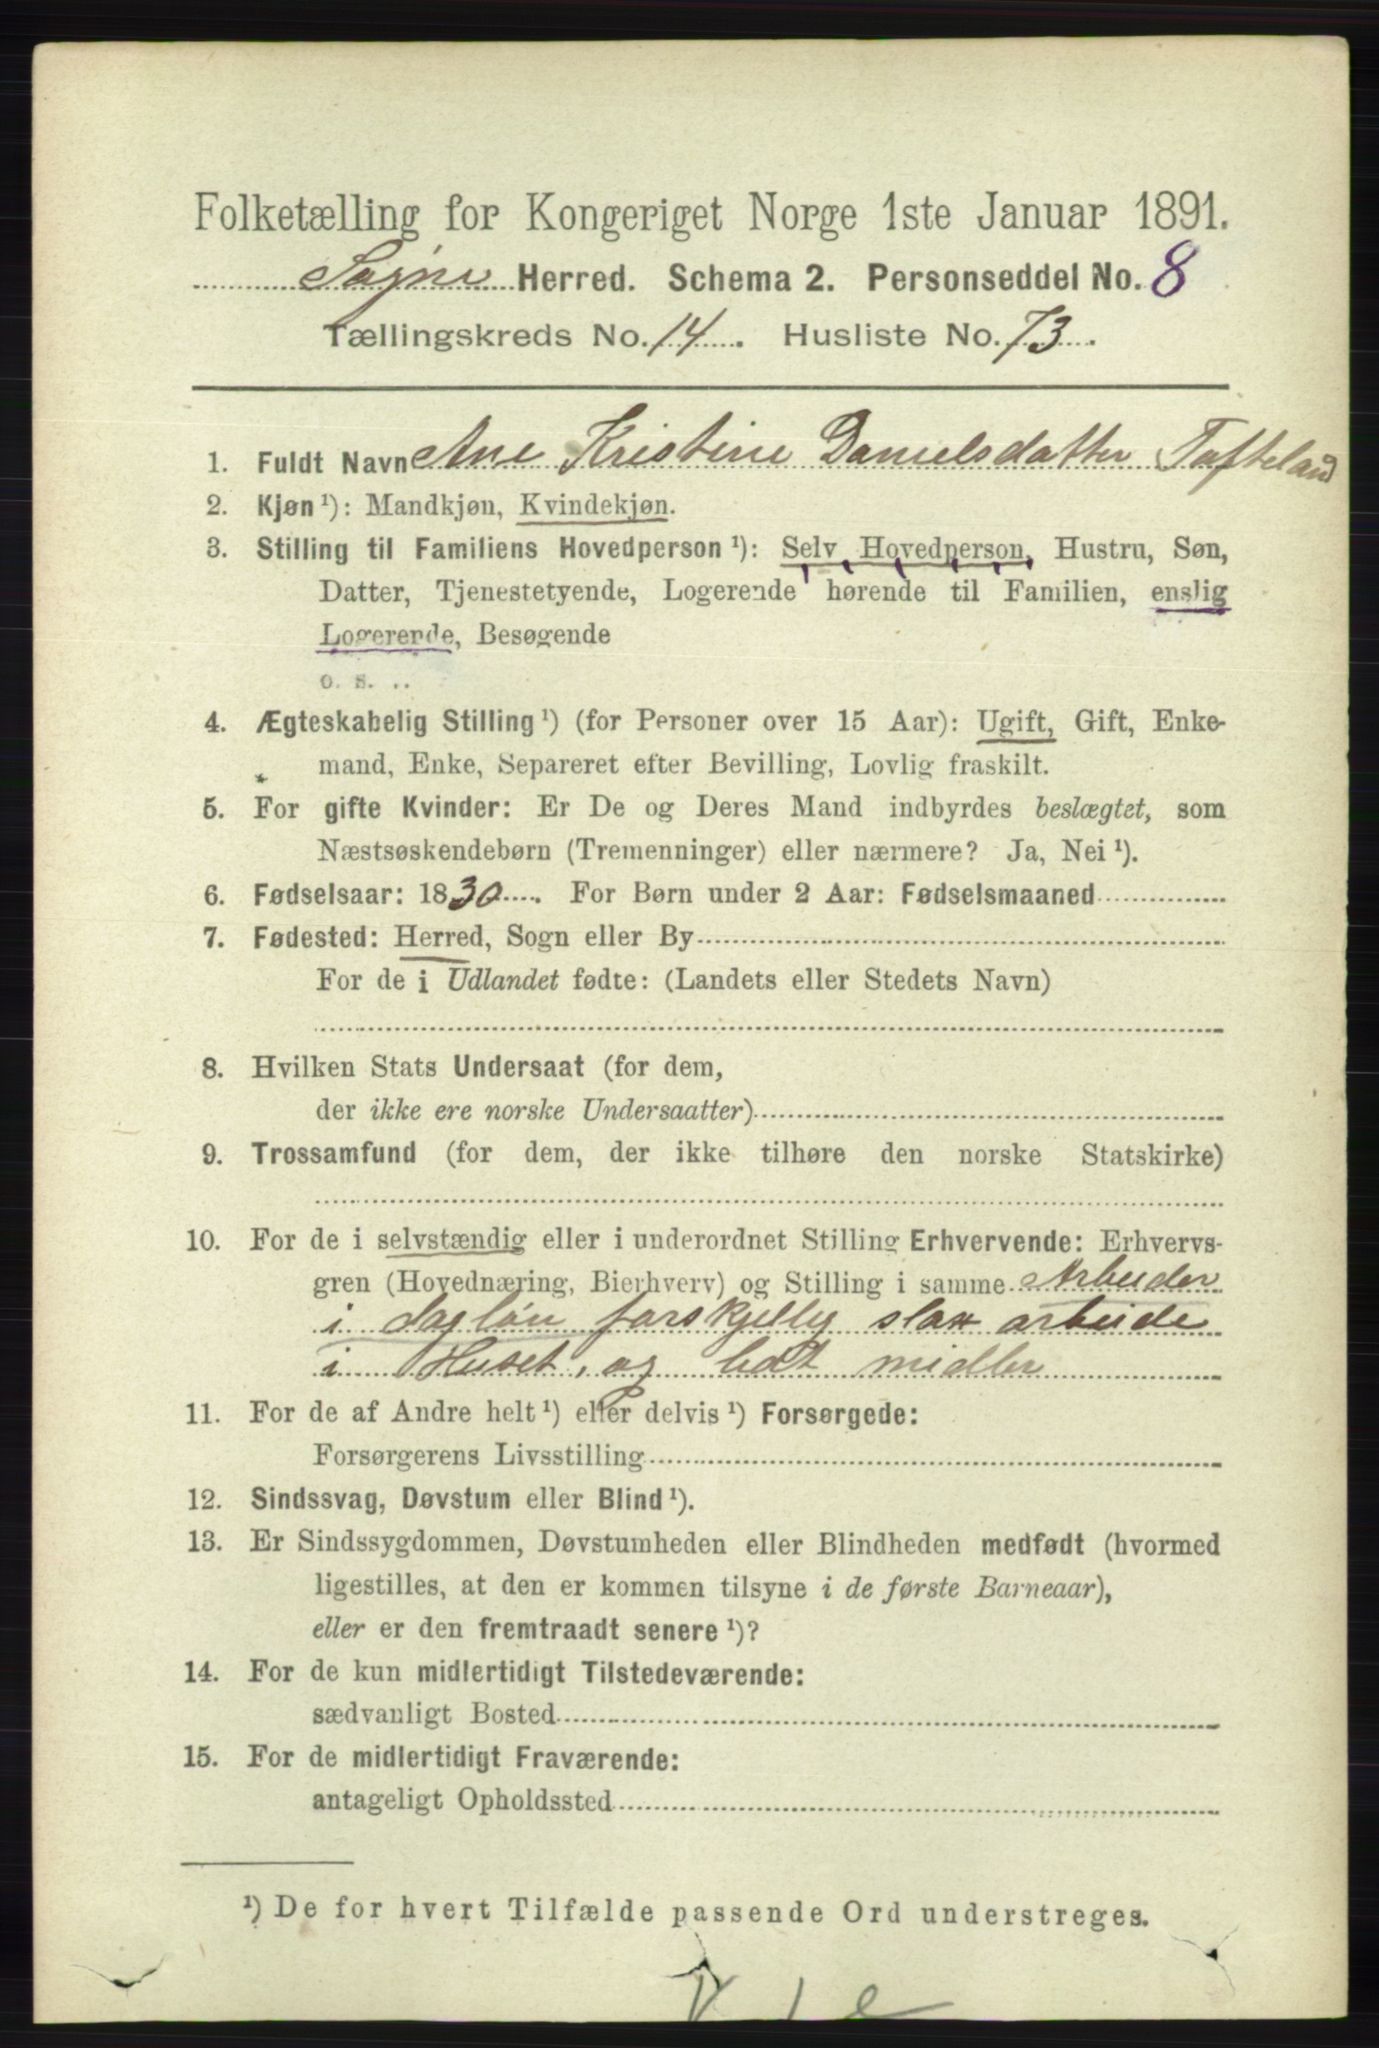 Folketælling for Kongeriget Norge 1ste Januar 1891.
Søgne Herred. Schema 2. Personseddel No. 8
Tællingskreds No. 14. Husliste No. 73.
1. Fuldt Navn Ane Kristine Danielsdatter Tofteland
2. Kjøn ¹): Mandkjøn, Kvindekjøn.
3. Stilling til Familiens Hovedperson ¹): Selv Hovedperson, Hustru, Søn,
Datter, Tjenestetyende, Logerende hørende til Familien, enslig
Logerende, Besøgende
o. s. ..
4. Ægteskabelig Stilling ¹) (for Personer over 15 Aar): Ugift, Gift, Enke-
mand, Enke, Separeret efter Bevilling, Lovlig fraskilt.
5. For gifte Kvinder: Er De og Deres Mand indbyrdes beslægtet, som
Næstsøskendebørn (Tremenninger) eller nærmere? Ja, Nei ¹).
6. Fødselsaar: 1830. For Børn under 2 Aar: Fødselsmaaned
7. Fødested: Herred, Sogn eller By
For de i Udlandet fødte: (Landets eller Stedets Navn)
8. Hvilken Stats Undersaat (for dem,
der ikke ere norske Undersaatter)
9. Trossamfund (for dem, der ikke tilhøre den norske Statskirke)
10. For de i selvstændig eller i underordnet Stilling Erhvervende: Erhvervs-
gren (Hovednæring, Bierhverv) og Stilling i samme Arbeider
i dagløn forskjellig slax arbeide
i Huset, og lidt midler
11. For de af Andre helt ¹) eller delvis ¹) Forsørgede:
Forsørgerens Livsstilling
12. Sindssvag, Døvstum eller Blind ¹).
13. Er Sindssygdommen, Døvstumheden eller Blindheden medfødt (hvormed
ligestilles, at den er kommen tilsyne i de første Barneaar),
eller er den fremtraadt senere ¹)?
14. For de kun midlertidigt Tilstedeværende:
sædvanligt Bosted
15. For de midlertidigt Fraværende:
antageligt Opholdssted
¹) De for hvert Tilfælde passende Ord understreges.